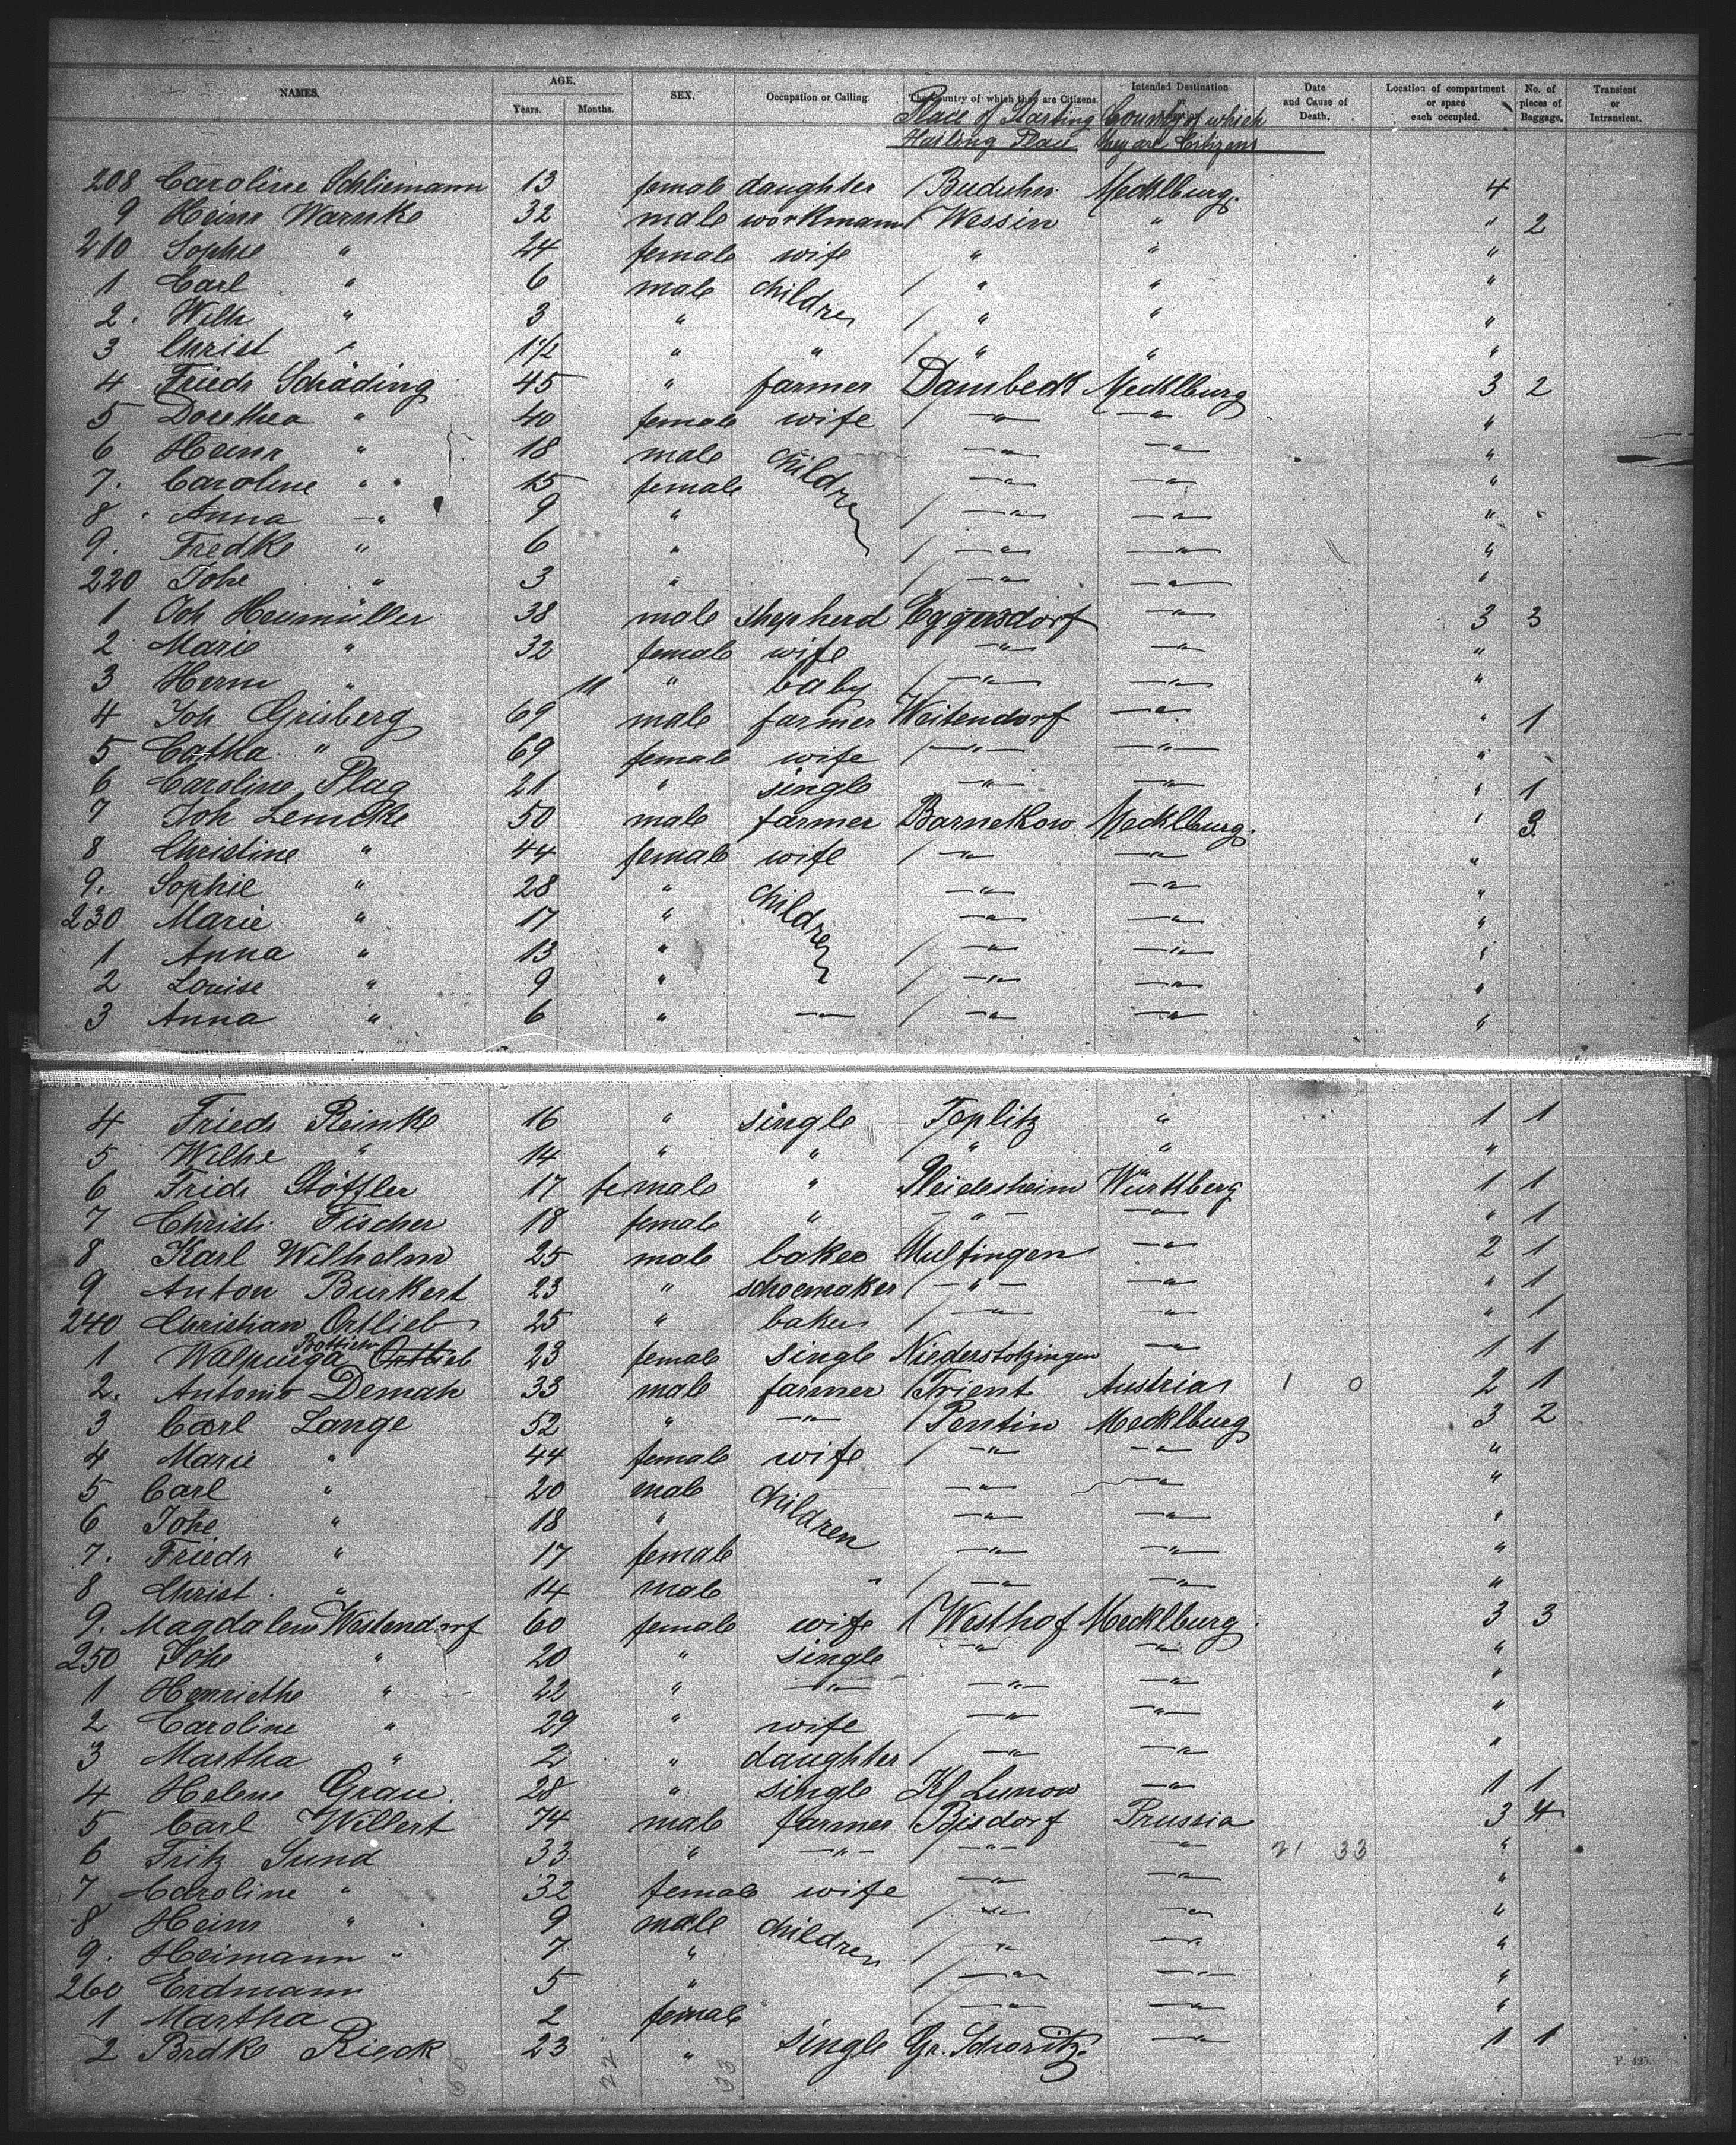 NAMES. AGE. Years. Months. SEX. Occupation or Calling. The Country of which they are Citizens. Intended Destination or Date and Cause of Death. Location of compartment or space each occupied. No. of pieces of Baggage. Transient or Intransient.
Place of Starting Country of which
Hailing Place they are Citizens
208 Caroline Schliemann 13 female daughter / Buduhn Mecklburg. 4
9 Heinr Warnke 32 male workmann / Wessin " " 2
210 Sophie " 24 female wife " " "
1 Carl " 6 male children / " " "
2. Wilh " 3 " / " " "
3 Christ " 1 1/2 " " / " " "
4 Friedr Schäding 45 " farmer Dambeck Mecklburg 3 2
5 Dorethea " 40 female wife / " " "
6 Heinr " 18 male children " " "
7. Caroline " 15 female " " "
8 Anna " 9 " / " " "
9. Fredke " 6 " / " " "
220 Johe " 3 " / " " "
1 Joh Heumüller 38 male shepherd Eggersdorf " 3 3
2 Marie " 32 female wife " " "
3 Herm " 11 " baby / " " "
4 Joh. Grisberg 69 male farmer Weitendorf " " 1
5 Catha " 69 female wife / " " "
6 Caroline Plag 21 " single " " " 1
7 Joh Lemcke 50 male farmer Barnekow Mecklburg. " 3
8 Christine " 44 female wife / " " "
9. Sophie " 28 " children " " "
230 Marie " 17 " " " "
1 Anna " 13 " / " " "
2 Louise " 9 " / " " "
3 Anna " 6 " " / " " "
4 Friedr Reinke 16 " single Teplitz " 1 1
5 Wilhe " 14 " " / " " "
6 Fridr Stöffler 17 female " Pleidesheim Württberg 1 1
7 Christi. Fischer 18 female " " " " 1
8 Karl Wilhelm 25 male baker Mulfingen " 2 1
9 Anton Burkert 23 " schoemaker / " " " 1
240 Christian Ortlieb 25 " baker / " " " 1
1 Walpurga Ortlieb 23 female single Niederstotzingen " 1 1
2. Antonio Demah 33 male farmer / Trient Austria 1 0 2 1
3 Carl Lange 52 " " / Pentin Mecklburg 3 2
4 Marie " 44 female wife / " " "
5 Carl " 20 male children " " "
6 Johe " 18 " " " "
7. Friedr " 17 female " " "
8 Christ. " 14 male " / " " "
9. Magdalene Westendorf 60 female wife / Westhof Mecklburg. 3 3
250 Johe " 20 " single " " "
1 Henriethe " 22 " " " " "
2 Caroline " 29 " wife " " "
3 Martha " 2 " daughter / " " "
4 Helene Grau. 28 " single Kl Lunow " 1 1
5 Carl Willert 74 male farmer / Bisdorf Prussia 3 4
6 Fritz Sund 33 " " / " " 21 33 "
7 Caroline " 32 female wife " " "
8 Heinr " 9 male children / " " "
9. Heimann " 7 " / " " "
260 Erdmann 5 " / " " "
1 Martha 2 female / " " "
2 Brdke Rieck 23 " single Gr. Schoritz. " 1 1
22 33
F. 425.